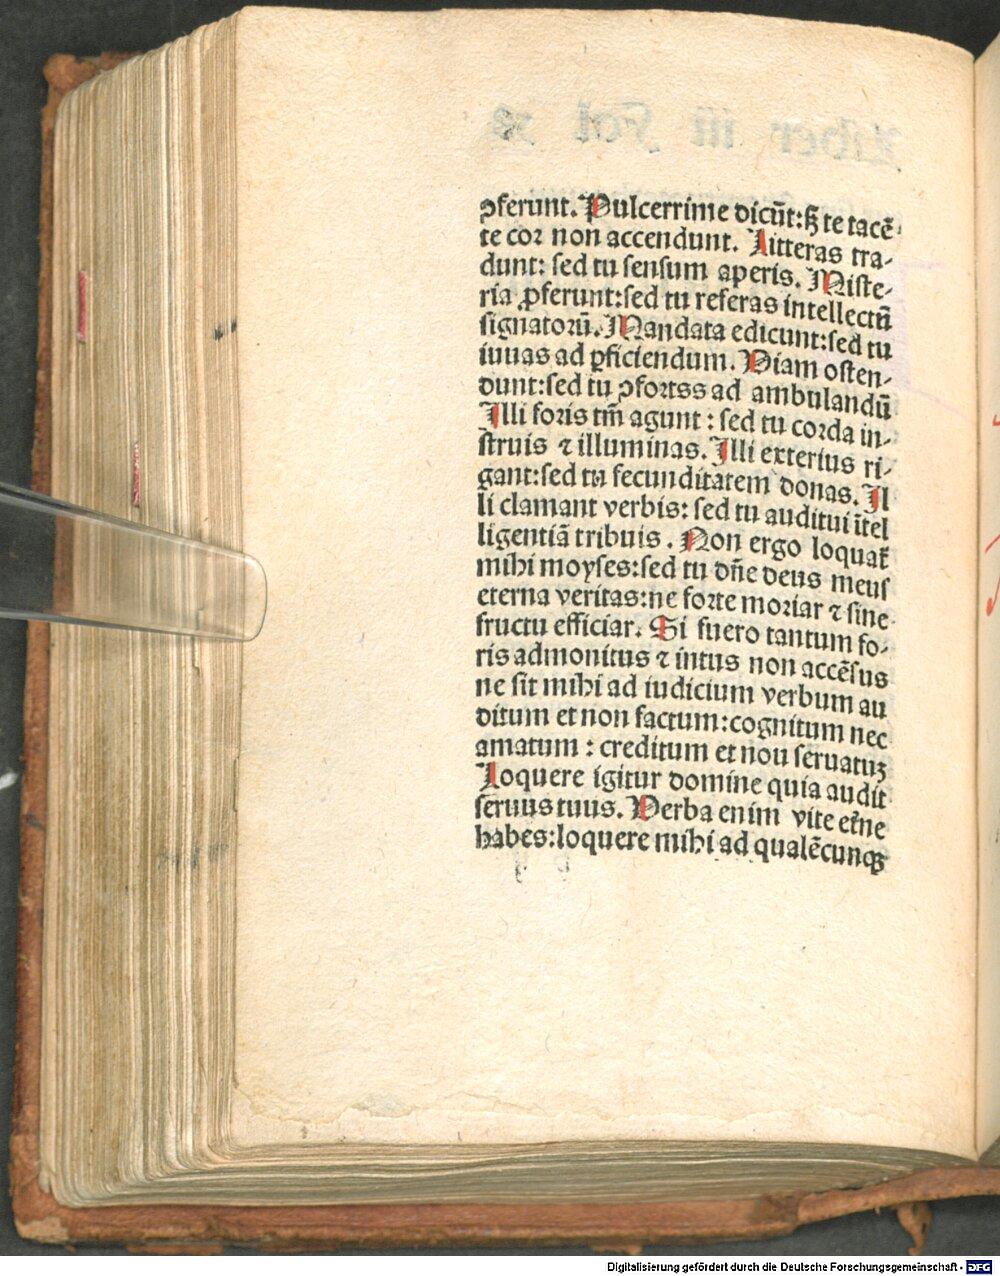 ꝯferunt. Pulcerrime dicūt: sꝫ te tacē-
te cor non accendunt. Litteras tra-
dunt: sed tu sensum aperis. Miste-
ria ꝓferunt: sed tu referas intellectū
signatorū. Mandata edicunt: sed tu
iuuas ad ꝑficiendum. Viam osten-
dunt: sed tu ꝯfortss ad ambulandū
Illi foris tm̄ agunt: sed tu corda in-
struis ⁊ illuminas. Illi exterius ri-
gant: sed tu fecunditatem donas. Il
li clamant verbis: sed tu auditui ītel
ligentiā tribuis. Non ergo loquat᷑
mihi moyses: sed tu dn̄e deus meus
eterna veritas: ne forte moriar ⁊ sine
fructu efficiar. Si fuero tantum fo-
ris admonitus ⁊ intus non accēsus
ne sit mihi ad iudicium verbum au
ditum et non factum: cognitum nec
amatum: creditum et nou seruatuꝫ
Loquere igitur domine quia audit
seruus tuus. Verba enim vite et̄ne
habes: loquere mihi ad qualēcunqꝫ
Digitalisierung gefördert durch die Deutsche Forschungsgemeinschaft - DFG